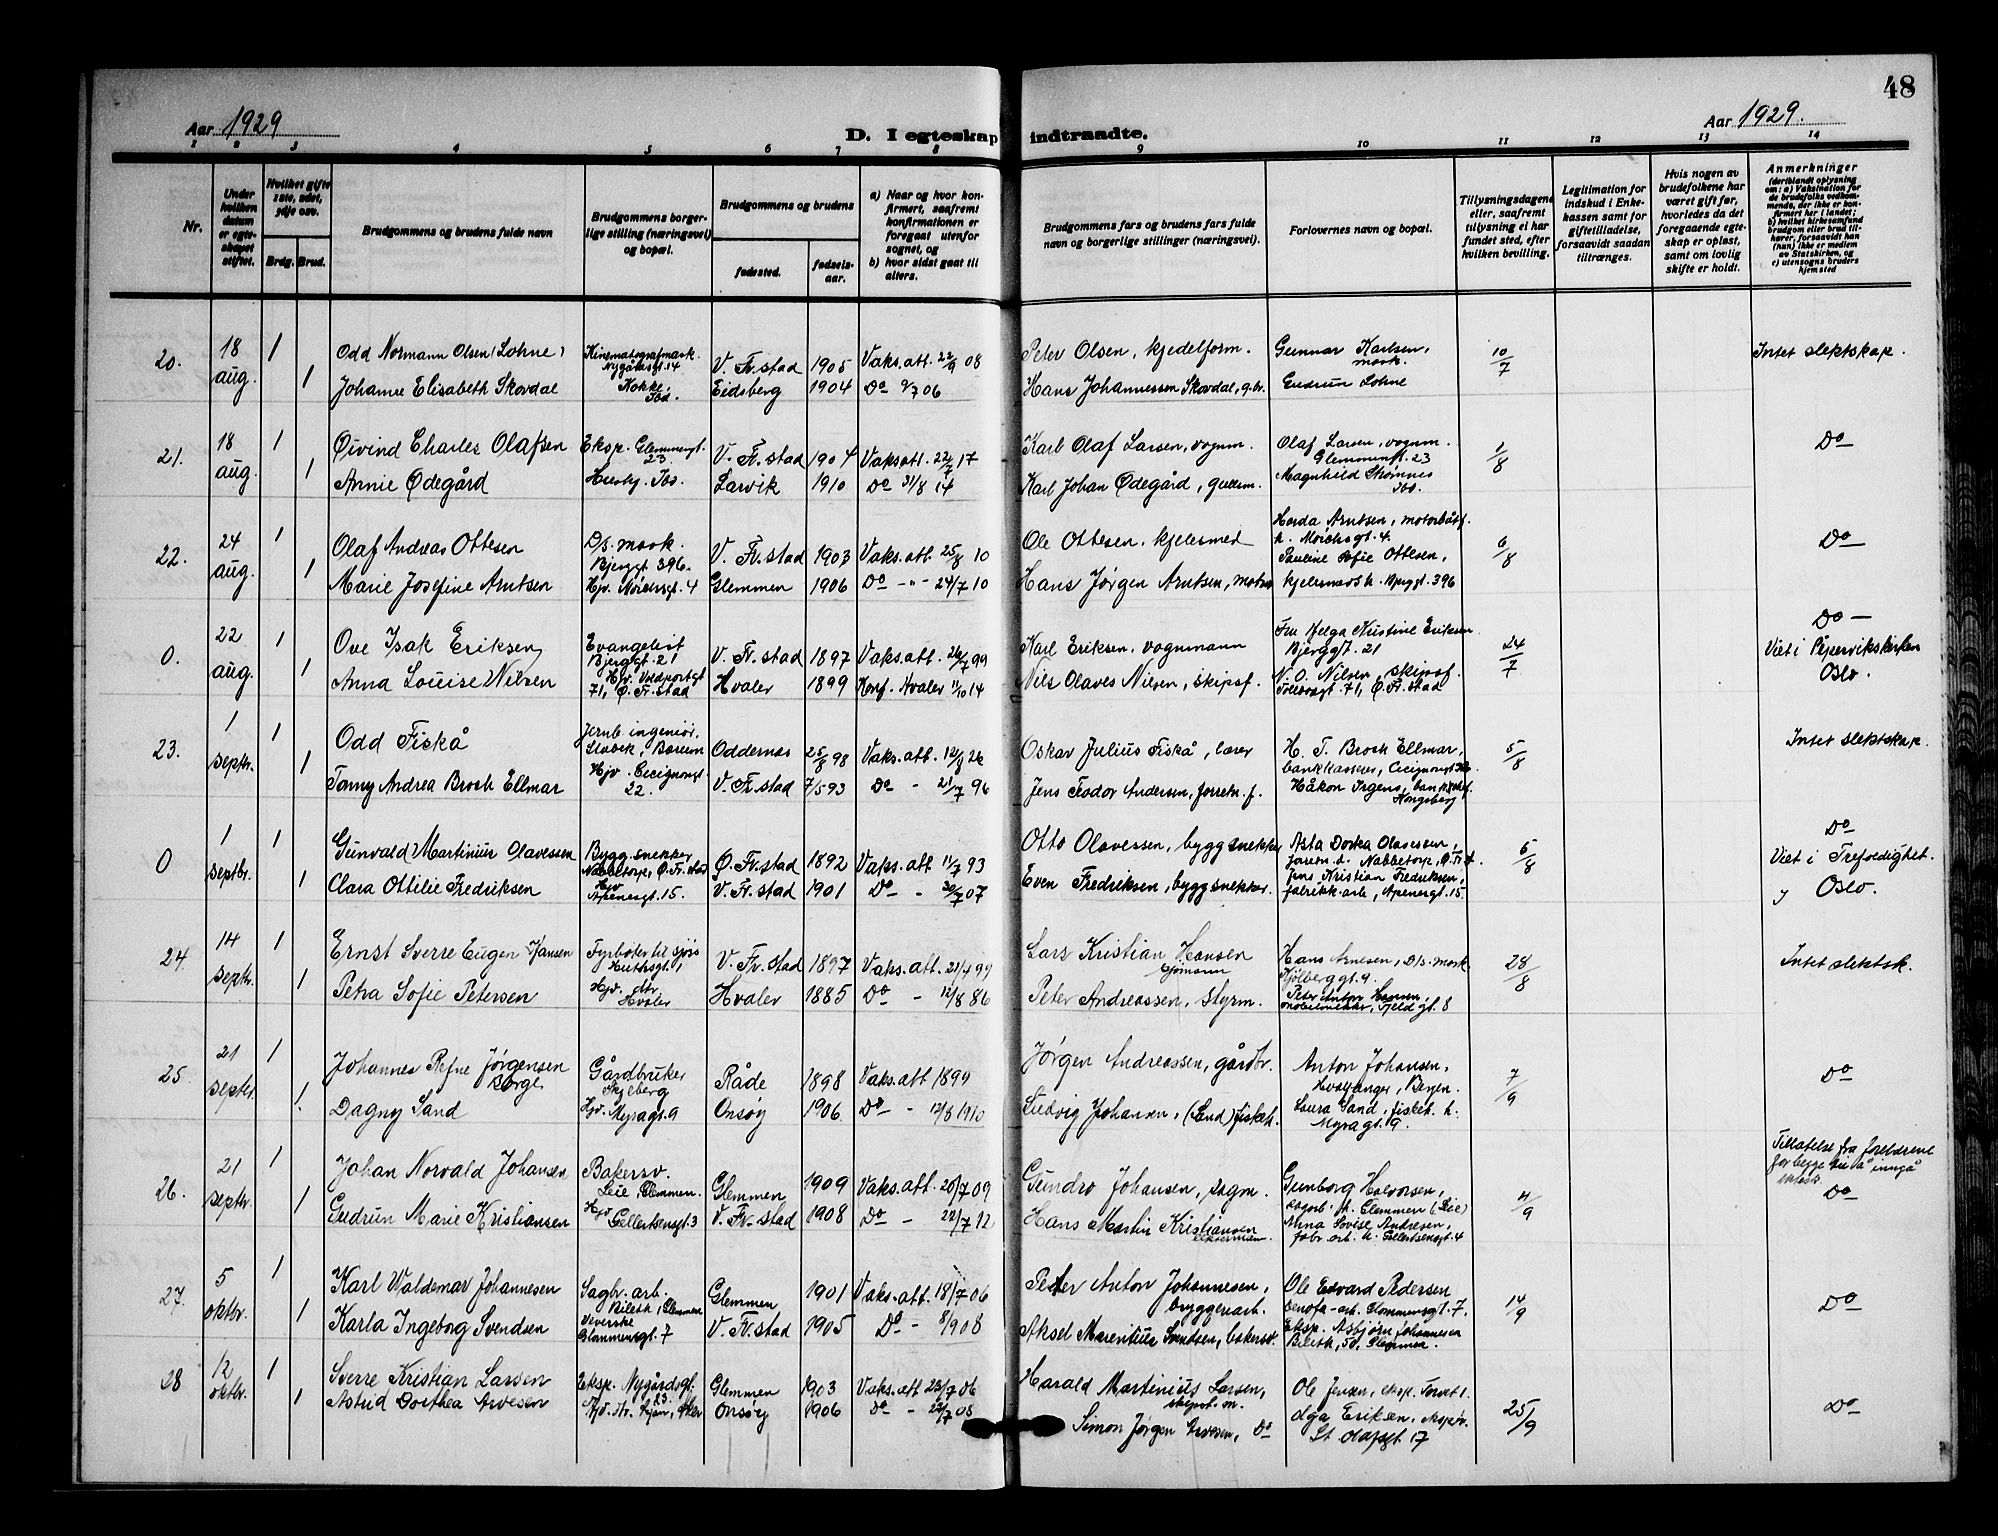 48
Aar 1929
D. I egteskap indtraadte.
Aar 1929.
1 2 3 4 5 6 7 8 9 10 11 12 13 14
Nr.
Under hvilken datum er egteskapet stiftet.
Hvilket gifte 1ste, 2det, 3dje osv.
Brdg. Brud.
Brudgommens og brudens fulde navn
Brudgommens borgerlige stilling (næringsvei) og bopæl.
Brudgommens og brudens
fødested. fødselsaar.
a) Naar og hvor konfirmert, saafremt konfirmationen er foregaat utenfor sognet, og
b) hvor sidst gaat til alters.
Brudgommens fars og brudens fars fulde navn og borgerlige stillinger (næringsvei).
Forlovernes navn og bopæl.
Tillysningsdagene eller, saafremt tillysning ei har fundet sted, efter hvilken bevilling.
Legitimation for indskud i Enkekassen samt for giftetilladelse, forsaavidt saadan tiltrænges.
Hvis nogen av brudefolkene har været gift før, hvorledes da det foregaaende egteskap er opløst, samt om lovlig skifte er holdt.
Anmerkninger
(deriblandt oplysning om: a) Vaksination for de brudefolks vedkommende, der ikke er konfirmert her i landet; b) hvilket kirkesamfund brudgom eller brud tilhører, forsaavidt han (hun) ikke er medlem av Statskirken, og c) utensogns bruders hjemsted
20. 18 aug. 1 Odd Normann Olsen (Lohne) Kinematografmask. Nygaardsgt. 14 V. Fr.stad 1905 Vaks.att. 22/9 08 Peter Olsen, kjedelform. Gunnar Karlsen, mask. 10/7 Intet slektskap.
1 Johanne Elisabeth Skovdal Kokke. Ibd. Eidsberg 1904 Do 9/7 06 Hans Johannessen Skovdal, g.br. Gudrun Lohne
21. 18 aug. 1 Øivind Charles Olafsen Eksp. Glemmengt. 23. V. Fr.stad 1904 Vaks.att. 22/7 17 Karl Olaf Larsen, vognm. Olaf Larsen, vognm. Glemmengt. 23 1/8 Do
1 Annie Ødegård Hushj. Ibd. Larvik 1910 Do 31/8 14 Karl Johan Ødegård, Magnhild Strømnes Ibd.
22. 24 aug. 1 Olaf Andreas Ottesen D/s. mask. Bjerggt 396. V. Fr.stad 1903 Vaks.att. 25/8 10 Ole Ottesen, kjelesmed Arntsen, motorbåtf. h. 4. 6/8 Do
1 Marie Josefine Arntsen Hjv. 4 Glemmen 1906 Do -"- 24/7 10 Hans Jørgen Arntsen, Pauline Sofie Ottesen, kjelesmeds h. Bjerggt. 396
0. 22 aug. 1 Ove Isak Eriksen Evangelist Bjerggt. 21 V. Fr.stad 1897 Vaks.att. 26/7 99 Karl Eriksen, vognmann Fru Helga Kristine Eriksen Bjerggt. 21 24/7 Do – Viet i Pipervikskirken Oslo.
1 Anna Louise Nilsen Hjv. Voldportgt 71, Ø. Fr.stad Hvaler 1899 Konf. Hvaler 11/10 14 Nils Olaves Nilsen, skipsf. N. O. Nilsen, skipsf. 71, Ø. Fr.stad
23. 1 septr. 1 Odd Fiskå Jernb. ingeniør, Stabek, Bærum Oddernes 25/8 98 Vaks.att. 12/8 26 Oskar Julius Fiskå, lærer H. T. Broch Ellmar, bankkasserer, Cecignongt. 5/8 Intet slektskap.
1 Tonny Andrea Broch Ellmar Hjv. Cecignongt 22. V. Fr.stad 7/5 93 Do - 21/7 96 Jens Teodor Andersen, forretn.f. Håkon Irgens, Kongsberg
0 1 septbr. 1 Gunvald Martinius Olavessen Bygg.snekker Nabbetorp, Ø. Fr.stad Ø. Fr.stad 1892 Vaks.att 11/7 93 Otto Olavessen, byggsnekker Asta Dortea Olavessen, Nabbetorp, Ø. Fr.st. 5/8 Do Viet i Trefoldighet. Oslo.
1 Clara Ottilie Fredriksen Hjv Apenesgt. 15. V. Fr.stad 1901 Do - 20/7 07 Even Fredriksen, byggsnekker. Jens Kristian Fredriksen, fabrikk-arb, Apenesgt. 15.
24. 14 septr. 1 Ernst Sverre Eugen Hansen Fyrbøter til sjøs Huthsgt. 1 V. Fr.stad 1897 Vaks.att. 21/4 99 Lars Kristian Hansen sjømann Hans Arnesen, D/s. mask Kjølberggt. 9. 28/8 Intet slektsk.
1 Petra Sofie Petersen Hjv. Hvaler Hvaler 1885 Do - 12/8 86 Peter Andreassen, styrm. Peter Anton Hansen, møbelsnekker, Fjeldgt. 8
25. 21 septr. 1 Johannes Refne Jørgensen Borge Gårdbruker Skjeberg Råde 1898 Vaks.att 1899 Jørgen Andreassen, gårdbr. Anton Johansen, Bergen. 7/9 Do
1. Dagny Sand Hjv. Myragt. 9 Onsøy 1906. Do - 12/8 1910 Ludvig Johansen, (Sand) fiskeh. Laura Sand, fiskeh. h. Myragt. 9.
26. 21 septr. 1 Johan Norvald Johansen Bakersv. Leie Glemmen. Glemmen 1909 Vaks.att 20/7 09 Gundro Johansen, sagm. Gunborg Halvorsen, h. Glemmen (Leie) 4/9 Tillatelse fra foreldrene for begge til å inngå ektesk. Do
1 Gudrun Marie Kristiansen Hjv Gellertsensgt. 3 V. Fr.stad 1908 Do - 22/7 12 Hans Martin Kristiansen Anna Lovise Andresen, fabr. arb. h. Gellertsensgt. 4
27. 5 oktbr. 1 Karl Waldemar Johannesen Sagbr. arb. Bileth, Glemmen Glemmen 1901 Vaks.att. 18/7 06 Peter Anton Johannesen, bryggeriarb. Ole Edvard Pedersen Glommensgt. 7. 14/9 Do
1 Karla Ingeborg Svendsen Veverske Glommensgt. 7 V. Fr.stad 1905 Do - 8/9 08 Aksel Marentius Svendsen, bakersv. Eksp. Asbjørn Johannesen Bileth, 50, Glemmen.
28 12 oktbr. 1 Sverre Kristian Larsen Eksp. Nygårdsgt. 23. Glemmen 1903 Vaks.att 23/7 06 Harald Martinius Larsen, Ole Jensen, eksp. Torvet 1. 25/9 Do
1 Astrid Dorthea Arvesen Hjv. Onsøy 1906 Do - 22/7 08 Simon Jørgen Arvesen, Do Olga Eriksen, St. Olafsgt. 17